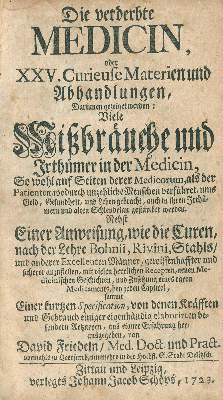 Die verderbte
MEDICIN,
oder
XXV. Curieuse Materien und
Abhandlungen,
Darinnen gezeiget werden:
Viele
Mißbräuche und
Irthümer in der Medicin,
So wohl auf Seiten derer Medicorum, als der
Patienten, wodurch unzehliche Menschen verführet, ums
Geld, Gesundheit, und Leben gebracht, auch in ihren Irthü-
mern und alten Schlendrian gestärcket werden.
Nebst
Einer Anweisung, wie die Curen,
nach der Lehre Bohnii, Rivini, Stahls/
und anderer Excellenten Männer, gewissenhaffter und
sicherer anzustellen, mit vielen herrlichen Recepten, neuen Me-
dicinischen Geschichten, und
samt
Einer kurtzen Specification, von denen Kräfften
und Gebrauch einiger eigenhändig elaborirten be-
sondern Artzneyen, aus eigner Erfahrung her-
ausgegeben, von
David Friedeln/ Med. Doct. und Pract.
Zittau und Leipzig,
verlegts Johann Jacob Schöps, 1723.